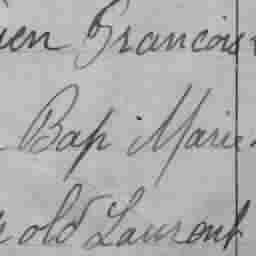 ien Francois
Bap Marie
old Laurent